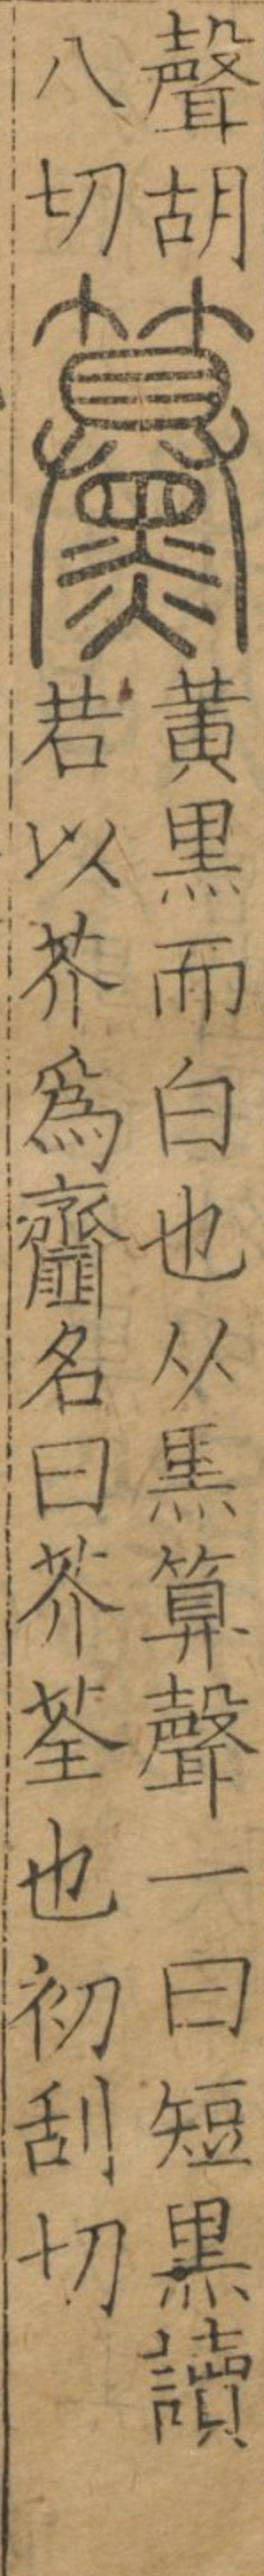 聲胡
八切
黃黒而白也从黒算聲一曰短黒讀
若以芥爲齏名曰芥荃也初刮切